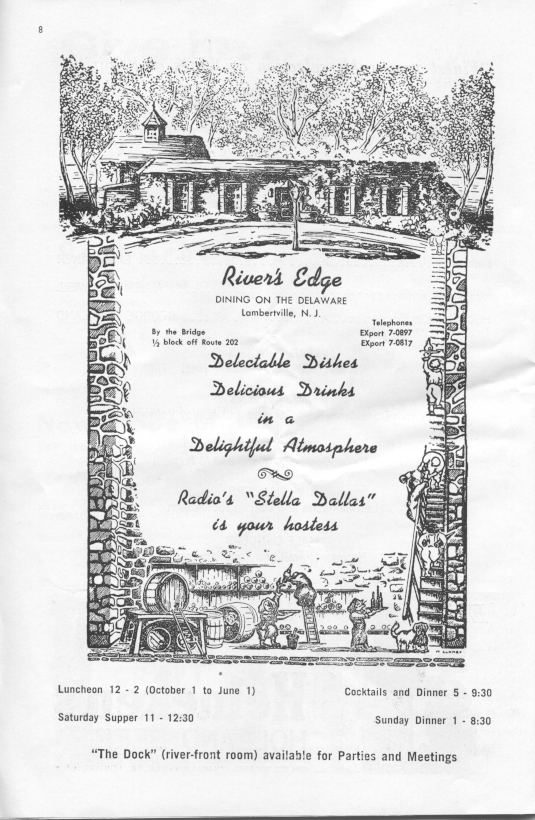 8
River's Edge
DINING ON THE DELAWARE
Lambertville, N. J.
By the Bridge
½ block off Route 202
Telephones
EXport 7-0897
EXport 7-0817
Delectable Dishes
Delicious Drinks
in a
Delightful Atmosphere
Radio's "Stella Dallas"
is your hostess
Luncheon 12 - 2 (October 1 to June 1)
Cocktails and Dinner 5 - 9:30
Saturday Supper 11 - 12:30
Sunday Dinner 1 - 8:30
"The Dock" (river-front room) available for Parties and Meetings